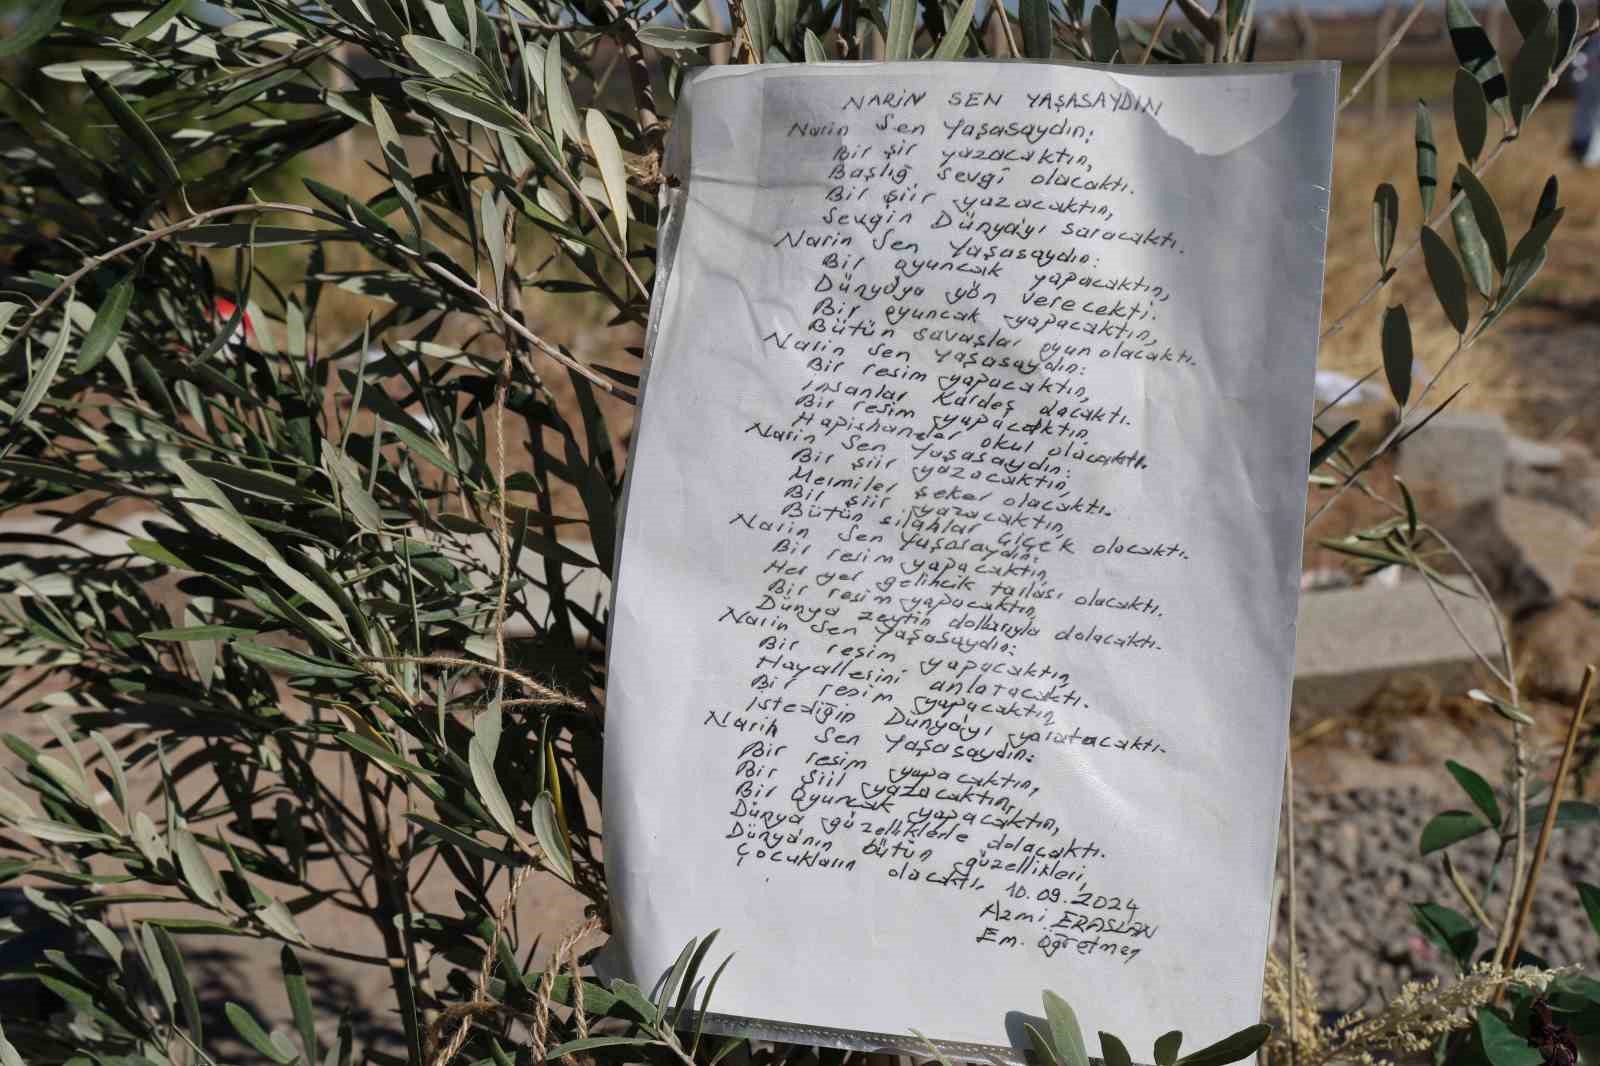 NARİN SEN YAŞASAYDIN
Narin Sen Yaşasaydın:
Bir şir yazacaktın,
Başlığ sevgi olacaktı.
Bir şiir yazacaktın,
Sevgin Dünya'yı saracaktı.
Narin Sen Yaşasaydın:
Bir oyuncak yapacaktın,
Dünyaya yön verecekti.
Bir oyuncak yapacaktın,
Bütün savaşlar oyun olacaktı.
Narin Sen Yaşasaydın:
Bir resim yapacaktın,
İnsanlar Kardeş olacaktı.
Bir resim yapacaktın,
Hapishaneler okul olacaktı.
Narin Sen Yaşasaydın:
Bir şiir yazacaktın,
Mermiler şeker olacaktı.
Bir şiir yazacaktın,
Bütün silahlar Çiçek olacaktı.
Narin Sen Yaşasaydın:
Bir resim yapacaktın,
Her yer gelincik tarlası olacaktı.
Bir resim yapacaktın,
Dünya zeytin dallarıyla dolacaktı.
Narin Sen Yaşasaydın:
Bir resim yapacaktın,
Hayallerini anlatacaktı.
Bir resim yapacaktın,
İstediğin Dünya'yı yaratacaktı.
Narin Sen Yaşasaydın:
Bir resim yapacaktın,
Bir şiir yazacaktın,
Bir Oyuncak yapacaktın,
Dünya güzelliklerle dolacaktı.
Dünya'nın bütün güzellikleri,
Çocukların olacaktı. 10.09.2024
Azmi ERASLAN
Em. Öğretmen